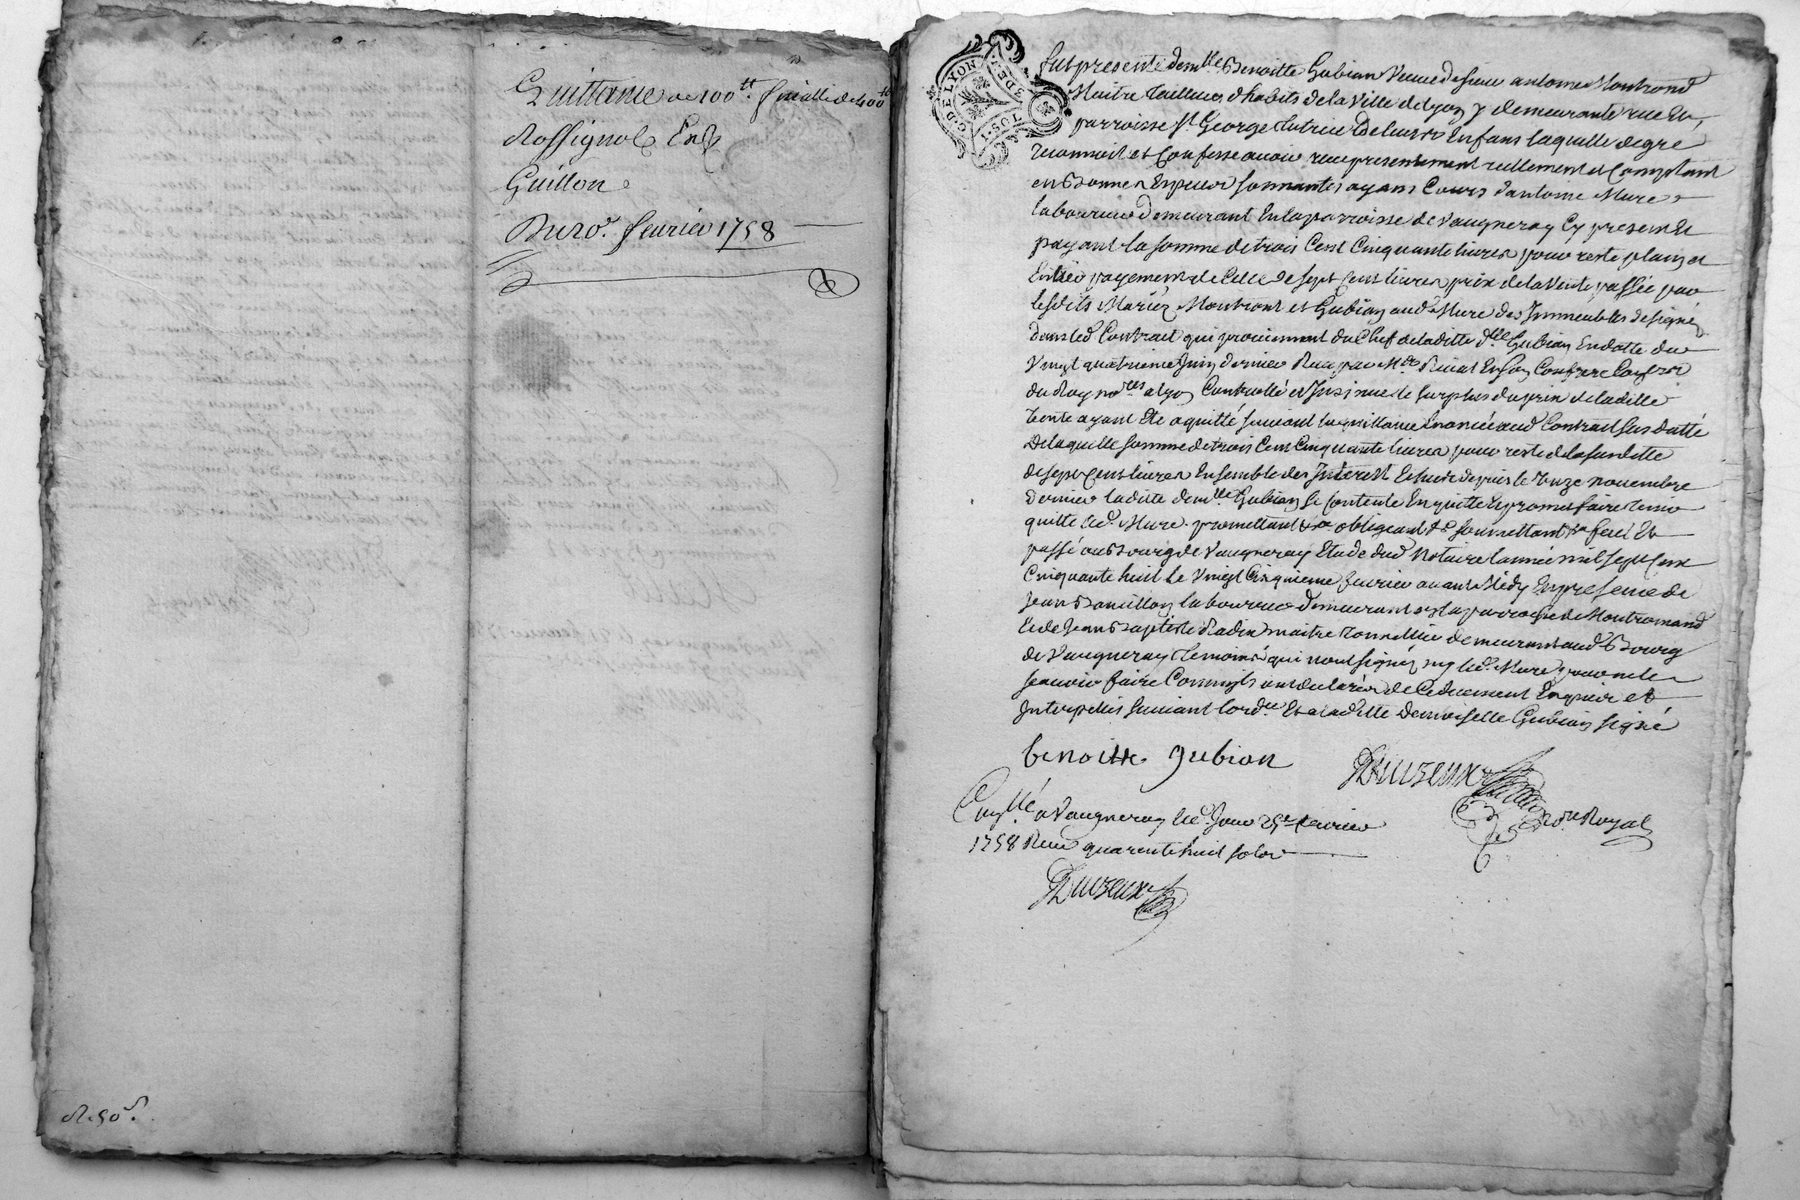 Quittance de 100ᵗᵗ finalle de 400ᵗᵗ
Rossignol Et
Guillon
Du 20ᵉ. feurier 1758
R. 50ˢ.
G. DE LYON
1. SOL. 3. DE.
fut presente demˡˡᵉ Benoitte Gubian Veuue de sieur antoine Montrond
Maitre Tailleur d'habits de la Ville de Lyon y demeurante rue Et
parroisse Sᵗ George tutrice de leurs Enfans laquelle de gré
reconnoit et Confesse auoir recu presentement reellement et Comptant
en Bonnes Especes sonnantes ayans Cours d'antoine Mure
laboureur demeurant En la parroisse de Vaugneray Cy present Et
payant la somme de trois Cent Cinquante liures pour reste plain et
Entier payement de Celle de sept Cent liures prix de la Vente passée par
lesdits Mariez Montront et Gubian aud. Mure des Immeubles designéz
dans led. Contrat qui prouiennent du Chef de laditte dˡˡᵉ Gubian En datte du
Vingt quatrieme Juin dernier Recu par Mᵉ Enson Confrere Conˢᵉʳ
du Roy noʳᵉˢ a Lyon Controllé et Insinué le surplus du prix de laditte
Vente ayant Eté aquitté suiuant la quittance Enoncée aud. Contrat sus datté
De laquelle somme de trois Cent Cinquante liures pour reste de la susditte
de sept Cent liures Ensemble des Interest Echus depuis le onze nouembre
dernier ladite demˡˡᵉ Gubian se Contente En quitte Et promet faire tenir
quitte led. Mure. promettant obligeant soumettant fait Et
passé au Bourg de Vaugneray Etude dud. Notaire l'année mil sept Cent
Cinquante huit le Vingt Cinquieme feurier auant Midy En presence de
Jean laboureur demeurant en la parroisse de Montromand
Et de Jean Baptiste Radix maitre Tonnellier demeurant aud. Bourg
de Vaugneray temoins qui n'ont signéz ny led. Mure pour ne le
scauoir faire Comm'ils ont declaréz de Ce duement Enquis et
Interpellés suiuant l'ordᶜᵉ Et a laditte Demoiselle Gubian signé
benoitte gubian
noʳᵉ Royal
Conˡˡᵉ a Vaugneray led. Jour 25ᵉ feurier
1758 Recu quarente huit sols